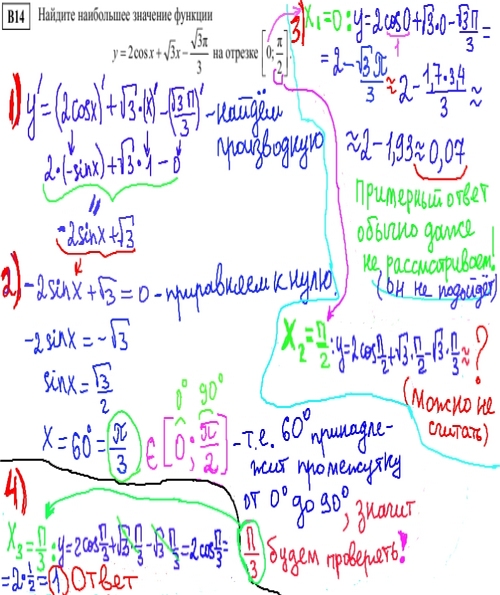 B14 Найдите наибольшее значение функции
y = 2cos x + √3x − √3π/3 на отрезке [0; π/2].
1) y' = (2cosx)' + √3·(x)' − (√3π/3)' - найдём
производную
2·(-sinx) + √3·1 − 0
=
-2sinx + √3
2) -2sinx + √3 = 0 - приравняем к нулю.
-2sinx = -√3
sinx = √3/2
0° 90°
x = 60° = π/3 ∈ [0; π/2] - т.е. 60° принадле-
жит промежутку
от 0° до 90°, значит
π/3 будем проверять!
3) X₁=0: y = 2cos0 + √3·0 − √3π/3 =
1
= 2 − √3π/3 ≈ 2 − 1,7·3,4/3 ≈
≈ 2 − 1,93 ≈ 0,07
Примерный ответ
обычно даже
не рассматриваем!
(он не подойдёт)
X₂ = π/2: y = 2cos π/2 + √3·π/2 − √3·π/3 ≈ ?
(Можно не
считать)
4)
X₃ = π/3: y = 2cos π/3 + √3·π/3 − √3·π/3 = 2cos π/3 =
= 2·1/2 = 1 Ответ